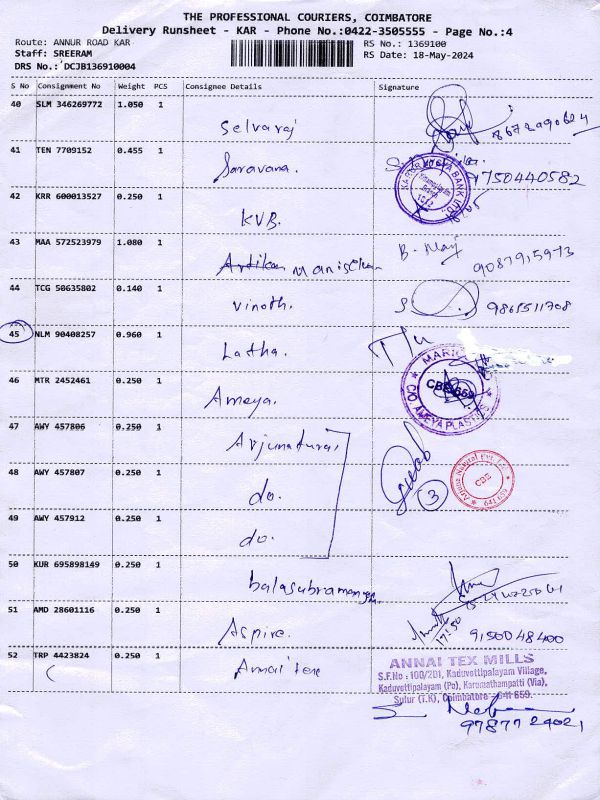 THE PROFESSIONAL COURIERS, COIMBATORE
Delivery Runsheet - KAR - Phone No.:0422-3505555 - Page No.:4
Route: ANNUR ROAD KAR
RS No.: 1369100
Staff: SREERAM
RS Date: 18-May-2024
DRS No.: DCJB136910004
S No Consignment No Weight PCS Consignee Details Signature
40 SLM 346269772 1.050 1
Selvaraj
8672290624
41 TEN 7709152 0.455 1
Saravana.
9750440582
42 KRR 600013527 0.250 1
KVB.
43 MAA 572523979 1.080 1
Manisekar
9087915973
44 TCG 50635802 0.140 1
Vinoth.
9865511708
45 NLM 90408257 0.960 1
Latha.
46 MTR 2452461 0.250 1
Ameya.
CBE-659
C/O. AMEYA PLASTICS
47 AWY 457806 0.250 1
Arjunadurai
48 AWY 457807 0.250 1
do.
3
CBE
49 AWY 457912 0.250 1
do.
50 KUR 695898149 0.250 1
balasubramanyan.
51 AMD 28601116 0.250 1
Aspire.
17:50
9150048400
52 TRP 4423824 0.250 1
Annai tex
ANNAI TEX MILLS
S.F.No : 100/2B1, Kaduvettipalayam Village,
Kaduvettipalayam (Po), Karumathampatti (Via),
Sulur (T.K), Coimbatore - 641 659.
9787724021